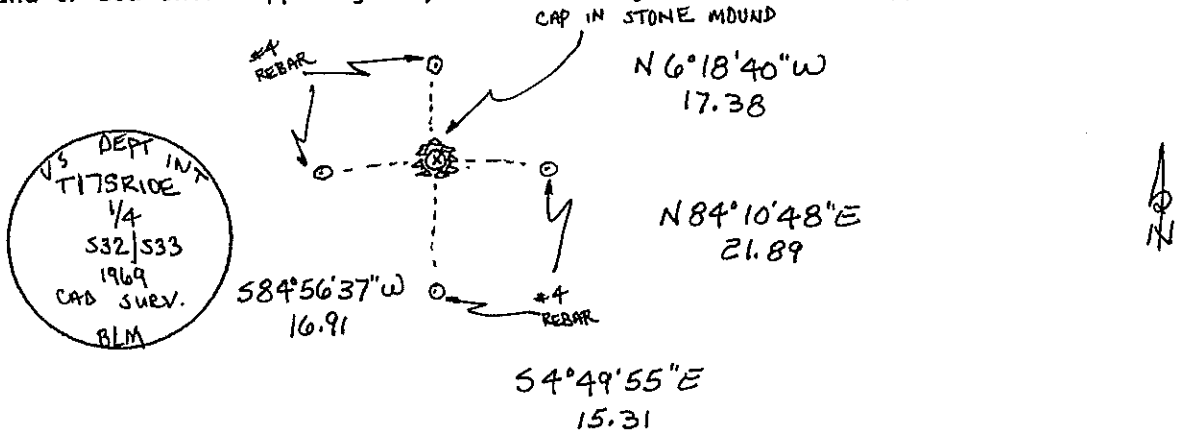 CAP IN STONE MOUND
#4
REBAR
N 6°18'40"W
17.38
US DEPT INT
T17SR10E
1/4
S32|S33
1969
CAD SURV.
BLM
N 84°10'48"E
21.89
S84°56'37"W
16.91
#4
REBAR
S4°49'55"E
15.31
N